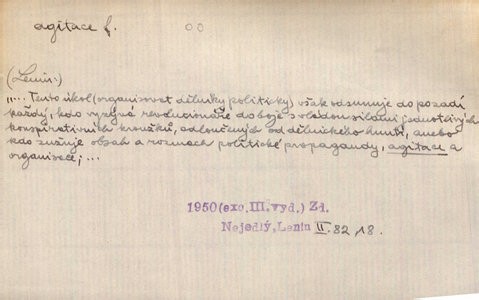 agitace f.
(Lenin:)
„... Tento úkol (organisovat dělníky politicky) však odsunuje do pozadí
každý, kdo vyzývá revolucionáře do boje s vládou silami jednotlivých
konspirativních kroužků, odloučených od dělnického hnutí, anebo
kdo zužuje obsah a rozmach politické propagandy, agitace a
organisace; ...
1950 (exc. III. vyd.) Zd.
Nejedlý, Lenin II. 82, 18.